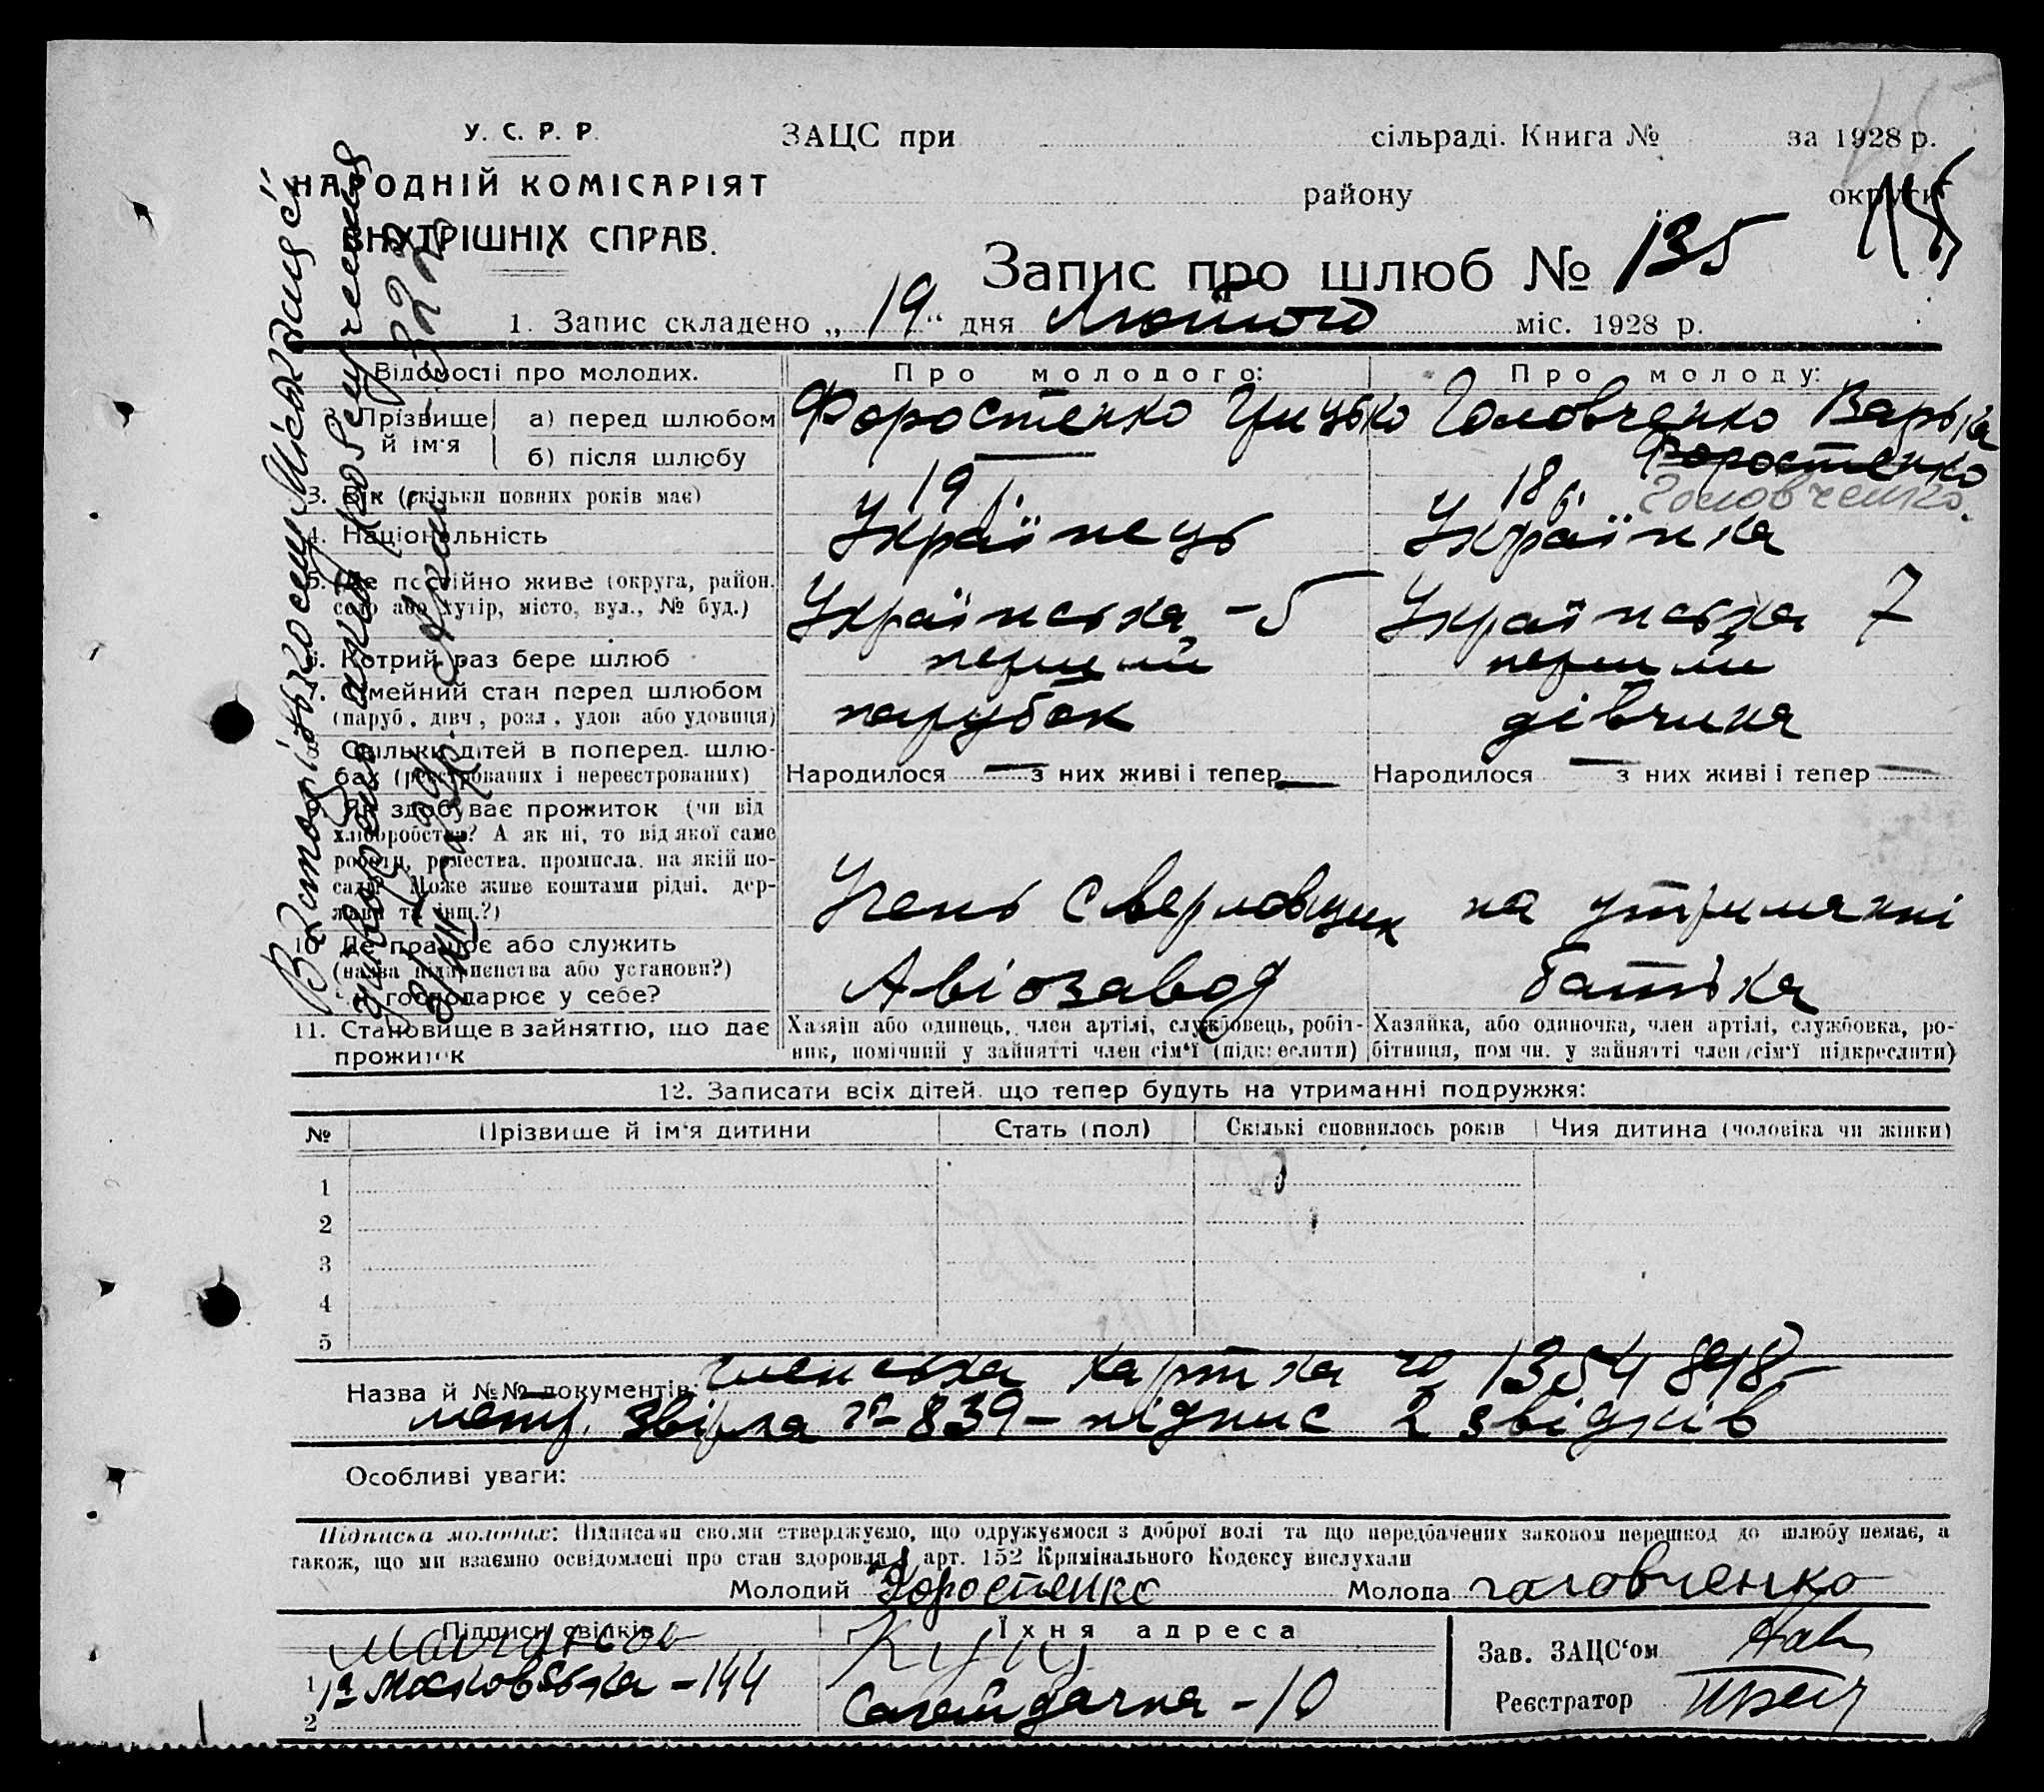 У. С. Р. Р.
НАРОДНІЙ КОМІСАРІЯТ
ВНУТРІШНІХ СПРАВ.
ЗАЦС при сільраді. Книга № за 1928 р.
району округи
Запис про шлюб № 135
1. Запис складено „ 19 “ дня Лютого міс. 1928 р.
Відомості про молодих. Про молодого: Про молоду:
2. Прізвище й ім'я
а) перед шлюбом Форостенко Грицько Головченко Варька
б) після шлюбу — Форостенко
Головченко.
3. Вік (скільки повних років має) 19 р. 18 р.
4. Національність Українець Українка
5. Де постійно живе (округа, район, село або хутір, місто, вул., № буд.) Українська - 5 Українська 7
6. Котрий раз бере шлюб перший перший
7. Сімейний стан перед шлюбом
(паруб., дівч., розл., удов або удовиця) парубок дівчина
Скільки дітей в поперед. шлюбах (реєстрованих і нереєстрованих) Народилося — з них живі і тепер — Народилося — з них живі і тепер —
Як здобуває прожиток (чи від
хліборобства? А як ні, то від якої саме
роботи, ремества, промисла, на якій по-
саді? Може живе коштами рідні, дер-
жави та інш.?) Учень сверловщик на утриманні
10. Де працює або служить
(назва підприємства або установи?)
чи господарює у себе? Авіозавод батька
11. Становище в зайняттю, що дає
прожиток
Хазяїн або одинець, член артілі, службовець, робіт-
ник, помічний у зайнятті член сім'ї (підкреслити)
Хазяйка, або одиночка, член артілі, службовка, ро-
бітниця, помічн. у зайнятті член сім'ї підкреслити)
12. Записати всіх дітей, що тепер будуть на утриманні подружжя:
№ Прізвище й ім'я дитини Стать (пол) Скількі сповнилось років Чия дитина (чоловіка чи жінки)
1
2
3
4
5
Назва й №№ документів: членська картка № 1354898
метр. звірка № 839 - підпис 2 звідків
Особливі уваги:
Підписка молодих: Підписами своїми стверджуємо, що одружуємося з доброї волі та що передбачених законом перешкод до шлюбу немає, а
також, що ми взаємно освідомлені про стан здоровля й арт. 152 Кримінального Кодексу вислухали
Молодий Форостенко Молода головченко
Підписи свідків Їхня адреса
1 Московська - 144
2 Сагайдачна - 10
Зав. ЗАЦС'ом
Реєстратор